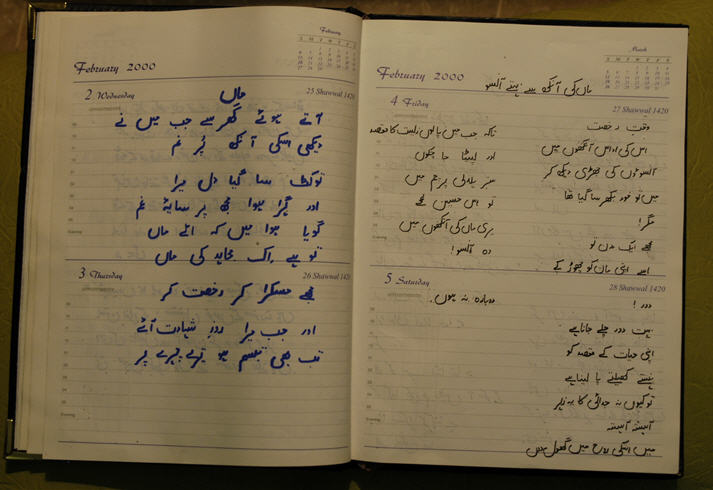 February
S M T W T F S
February 2000
2 Wednesday 25 Shawwal 1420
ماں
آتے ہوئے گھر سے جب میں نے
دیکھی اسکی آنکھ پُر غم
ٹوٹ سا گیا دل میرا
اور گرا ہوا مجھ پر سایۂ غم
گویا ہوا میں کہ اے ماں
تو ہے اک مجاہد کی ماں
3 Thursday 26 Shawwal 1420
مجھے مسکرا کر رخصت کر
اور جب میرا روز شہادت آئے
تب بھی تبسم ہو تیرے چہرے پر
March
S M T W T F S
February 2000
ماں کی آنکھ سے بہتے آنسو
4 Friday 27 Shawwal 1420
وقتِ رخصت
اس کی اداس آنکھوں میں
آنسوؤں کی جھڑی دیکھ کر
میں تو خود بکھر سا گیا تھا
مگر!
مجھے ایک دن تو
اسے اپنی ماں کو چھوڑ کے
5 Saturday 28 Shawwal 1420
دور!
بہت دور چلے جانا ہے
اپنی حیات کے مقصد کو
ہنستے کھیلتے پا لینا ہے
تو کیوں نہ جدائی کا یہ زہر
آہستہ آہستہ
میں اسکی روح میں گھول دوں
تاکہ جب میں پا لوں زیست کا مقصد
اور لپیٹا جا چکوں
سبز ہلالی پرچم میں
تو اس حسین لمحے
میری ماں کی آنکھوں میں
وہ آنسو!
دوبارہ نہ ہوں.